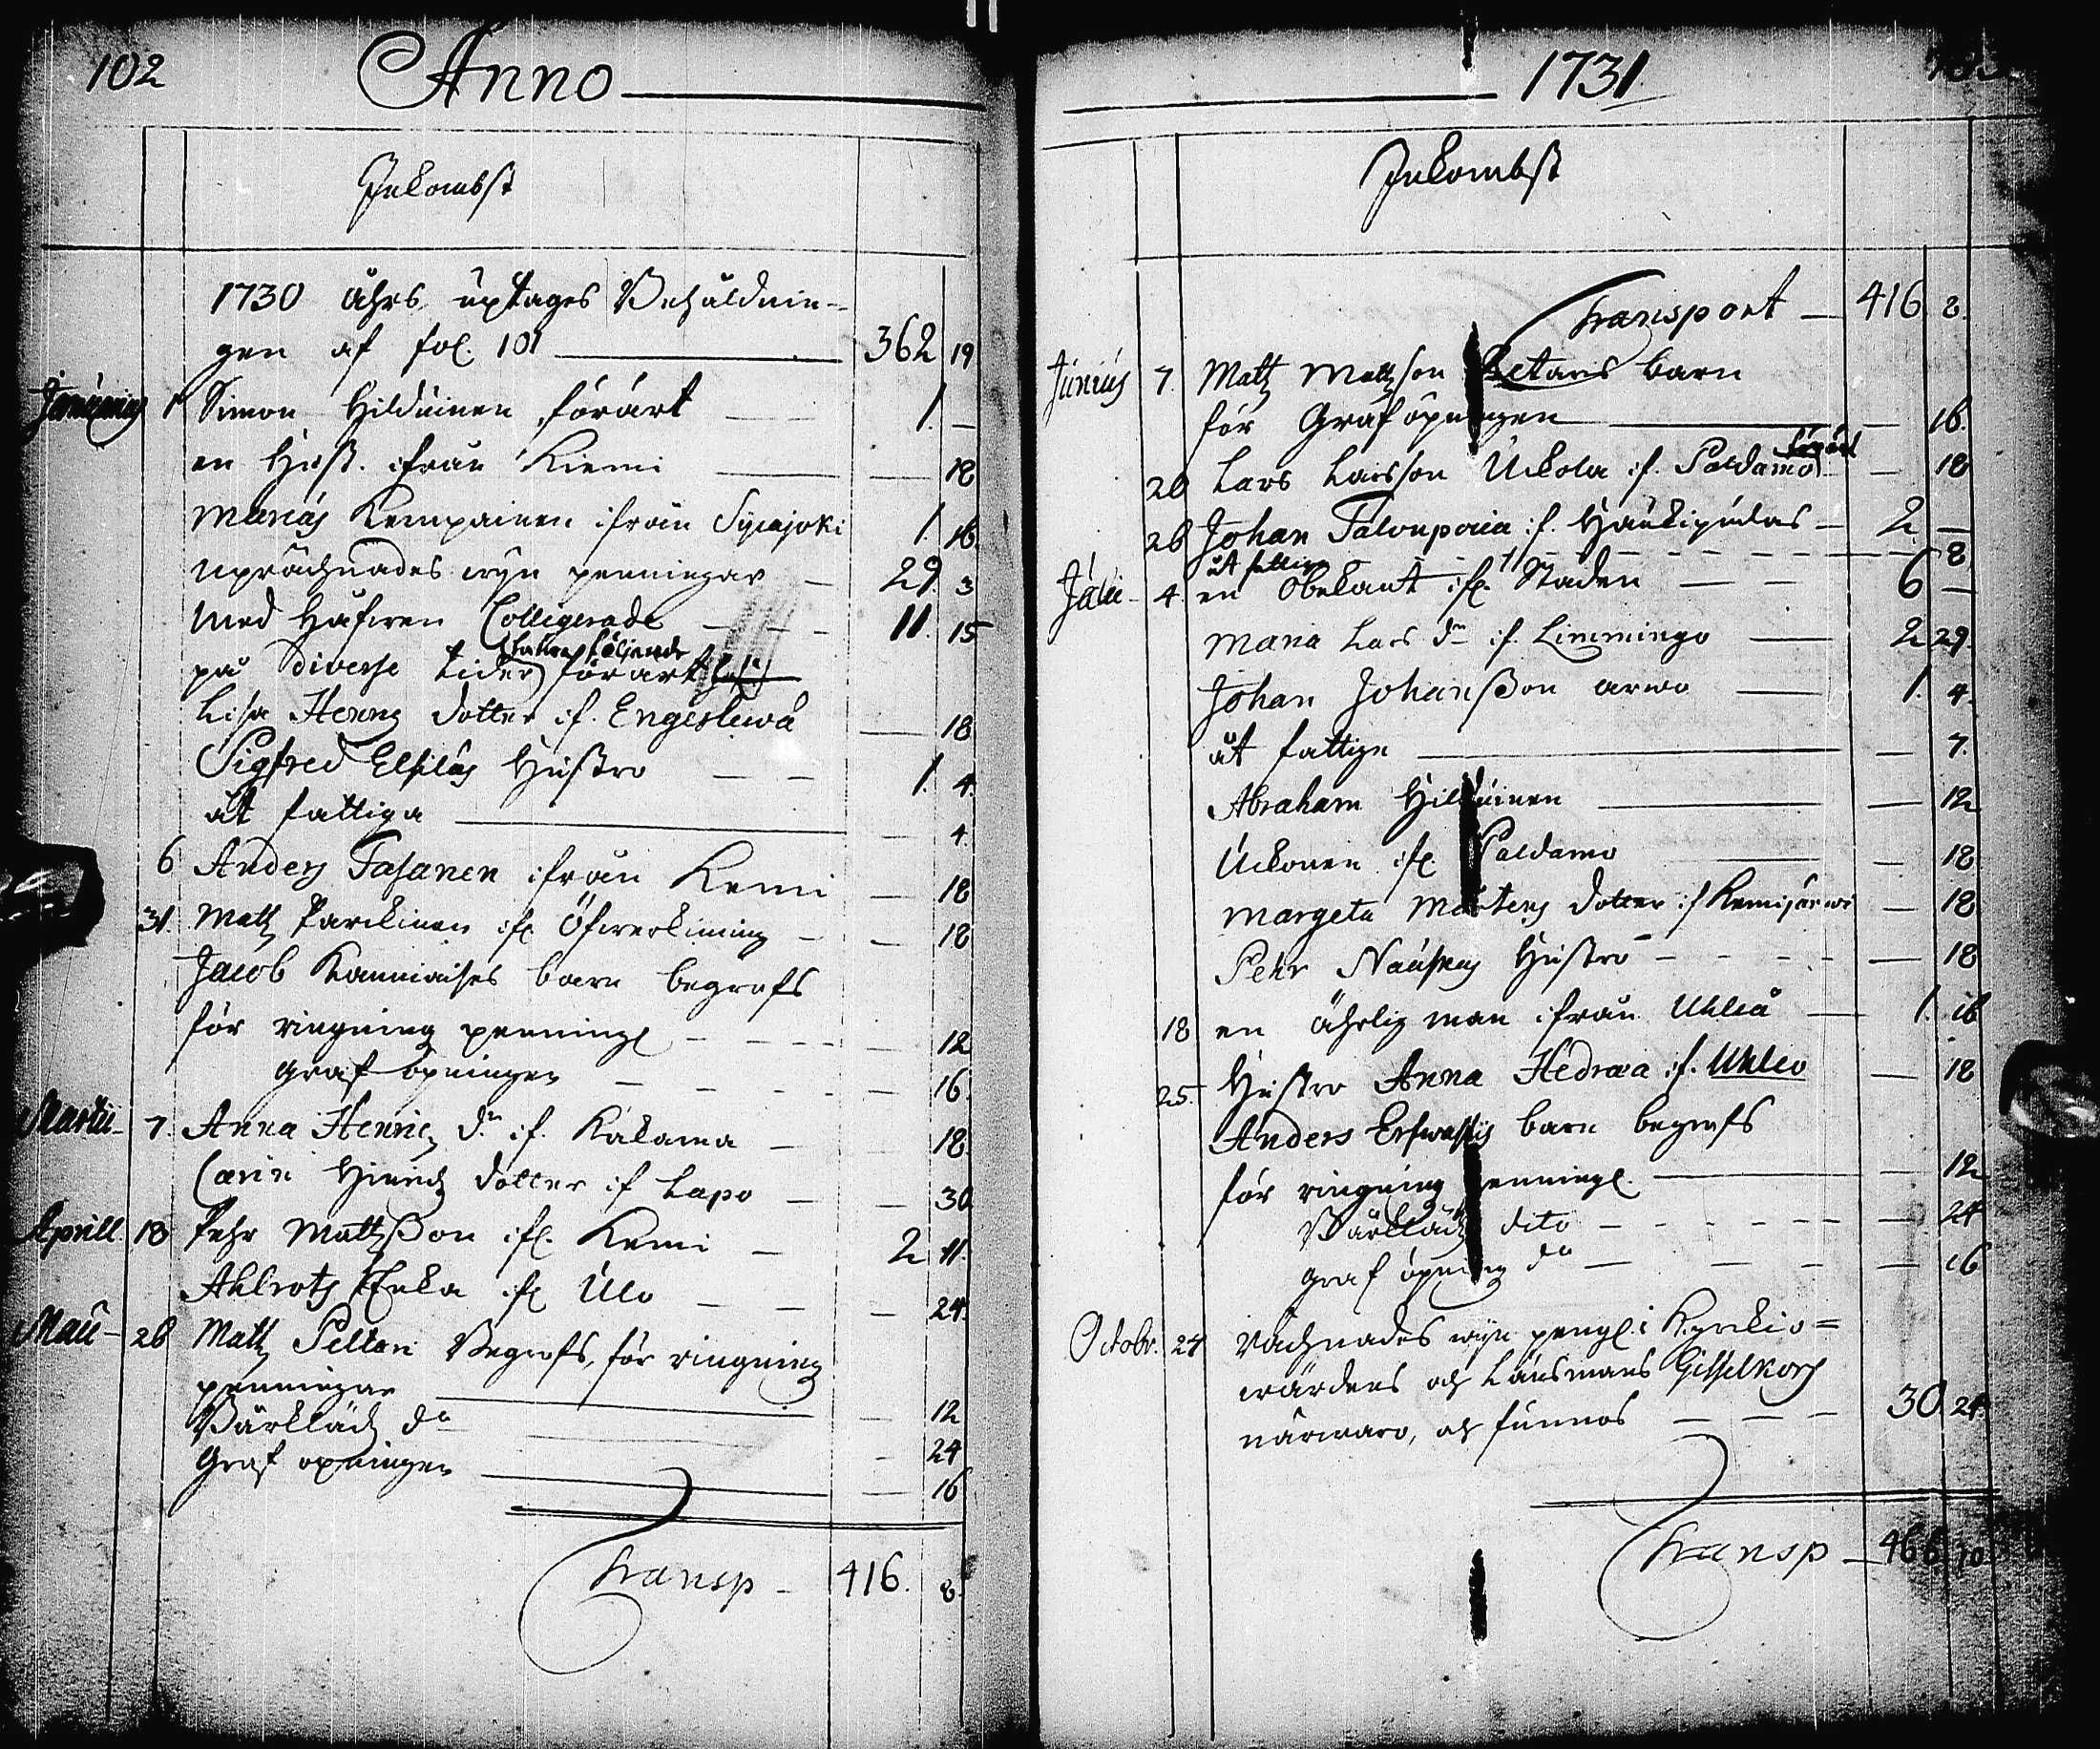 102 Anno
Inkombst
1730 åhrs uptages Behåldnin-
gen af fol. 101 362 19
Januarius 1 Simon Hilduinen förärt 1. —
en Hust. ifrån Kiemi — 18
Marias Kempainen ifrån Sijcajoki 1. 16.
Uprächnades wijn penningar — 29. 3
Med Håfwen Colligerade 11. 15
på diverse tider förärt
Lisa Henrs dotter if. Engeslewä — 18
Sigfred Hustro 1. 4.
åt fattiga — 4.
6 Anders Tasanen ifrån Kemi — 18
31. Matz Parckinen ifr. Öfwerkiming — 18
Jacob Kanniaises barn begrafs
för ringning penning. — 12
graf öpningen — 16.
Martii 7. Anna Henric dr. if. Kalama — 18.
Carin Hinrichs dotter if Lapo — 30
Aprill. 18 Pehr Mattzßon ifr. Kemi — 2 11.
Ahlrotz Enka ifr Ulo — 24.
Maii 26 Matz Peltari Begrafs, för ringning
penningar — 12
Bårkläde do — 24
Graf öpningen — 16
Transp — 416. 8.
1731.
Inkombst
Transport — 416 8.
Junius 7. Matz Matzson Ketaris barn
för Graf öpningen — 16.
20 Lars Larsson Uckola if. Paldamo förärt — 18
26 Johan Talonpoica if. Haukipudas — 2 —
åt fattiga — 8
Julii 4. en Obekant ifr. Staden — 6 —
Maria Lars dr. if. Limmingo — 2 29.
Johan Johanßon arwio — 1. 4.
åt fattige — 7.
Abraham Hilduinen — 12
Uckonen ifr. Paldamo — 18
Margeta Mårtens dotter if Kemijärwi — 18
Pehr Hustro — 18
18 en ährlig man ifrån Uhleå — 1. 16
25. Hustro Anna Hedraea if. Uhleo — 18
Anders barn begrafs
för ringning penning. — 12
Bårkläde dito — 24
graf öpning do — 16
Octobr. 24 Rächnades wijn peng. i Kyrckio=
wärdens och Länsmans Gisselkors
närwaro, och funnos — 30 24.
Transp — 466 10